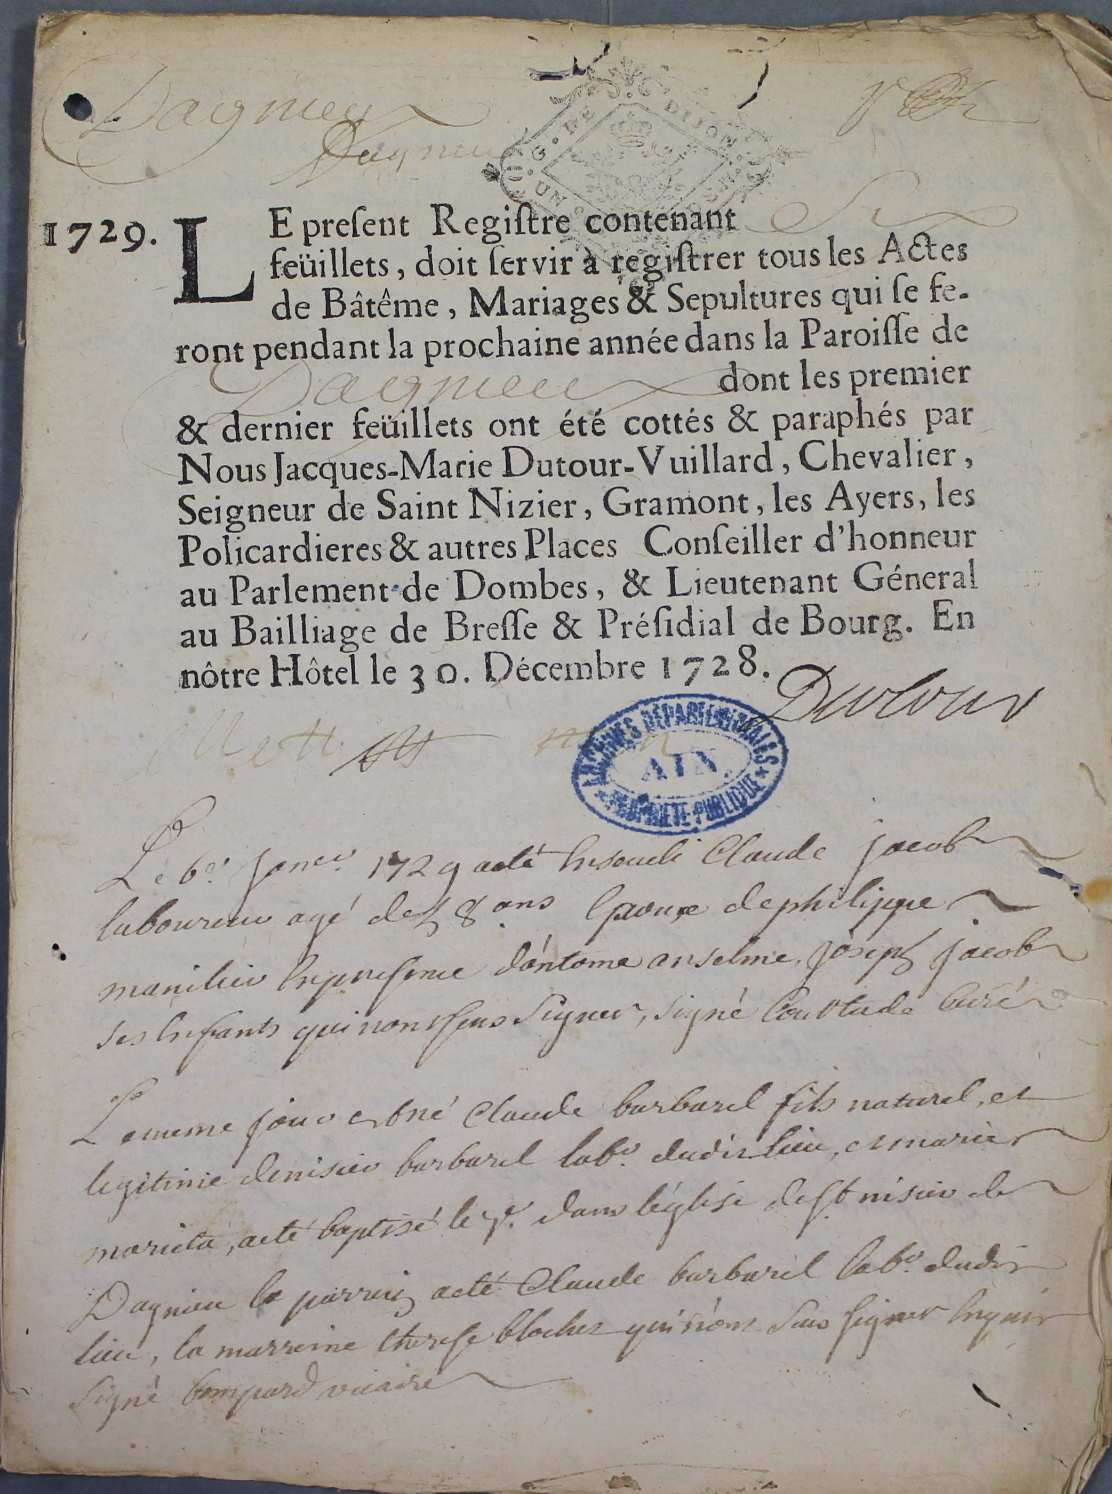 Dagnieu
Dagnieu
G. DE DIJON
UN
1729.
LE present Registre contenant Six
feüillets, doit servir à registrer tous les Actes
de Bâtême, Mariages & Sepultures qui se fe-
ront pendant la prochaine année dans la Paroisse de
Dagnieu dont les premier
& dernier feüillets ont été cottés & paraphés par
Nous Jacques-Marie Dutour-Vuillard, Chevalier,
Seigneur de Saint Nizier, Gramont, les Ayers, les
Policardieres & autres Places Conseiller d'honneur
au Parlement de Dombes, & Lieutenant Géneral
au Bailliage de Bresse & Présidial de Bourg. En
nôtre Hôtel le 30. Décembre 1728.
Dutour
ARCHIVES DÉPARTEMENTALES
AIN
PROPRIÉTÉ PUBLIQUE
Le 6e. janer. 1729 a eté Enseveli Claude jacob
laboureur agé de 58 ans Epoux de philippe
manilier En presence d'antoine anselme, joseph jacob
ses Enfants qui n'ont sceu signer, signé Curé
Le meme jour est né Claude barbarel fils naturel, et
legitime de nisier barbarel labr. dudit lieu, et marie
a eté baptisé le 7e. dans l'église de st nisier de
Dagnieu le parrein a eté Claude barbarel labr. dudit
lieu, la marreine therese qui n'ont sceu signer Enquis
signé Compard vicaire